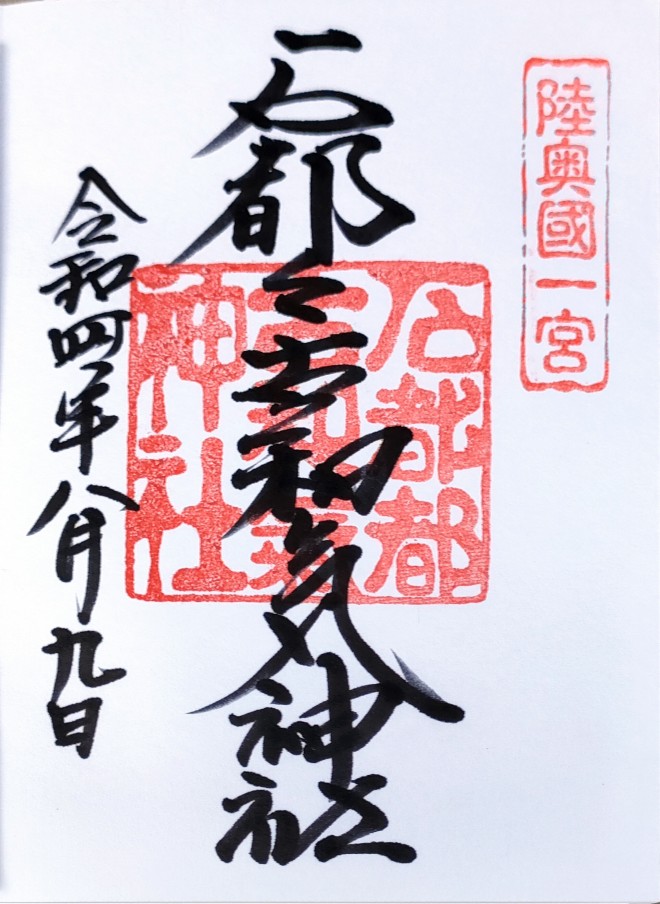 陸奥國一宮
石都々古和気神社
石都都
古和氣
神社
令和四年八月九日